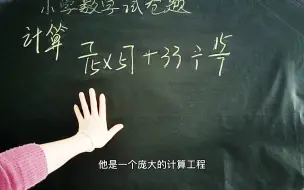 小学数学试卷题
计算 7/15×57+33÷15/7
他是一个庞大的计算工程